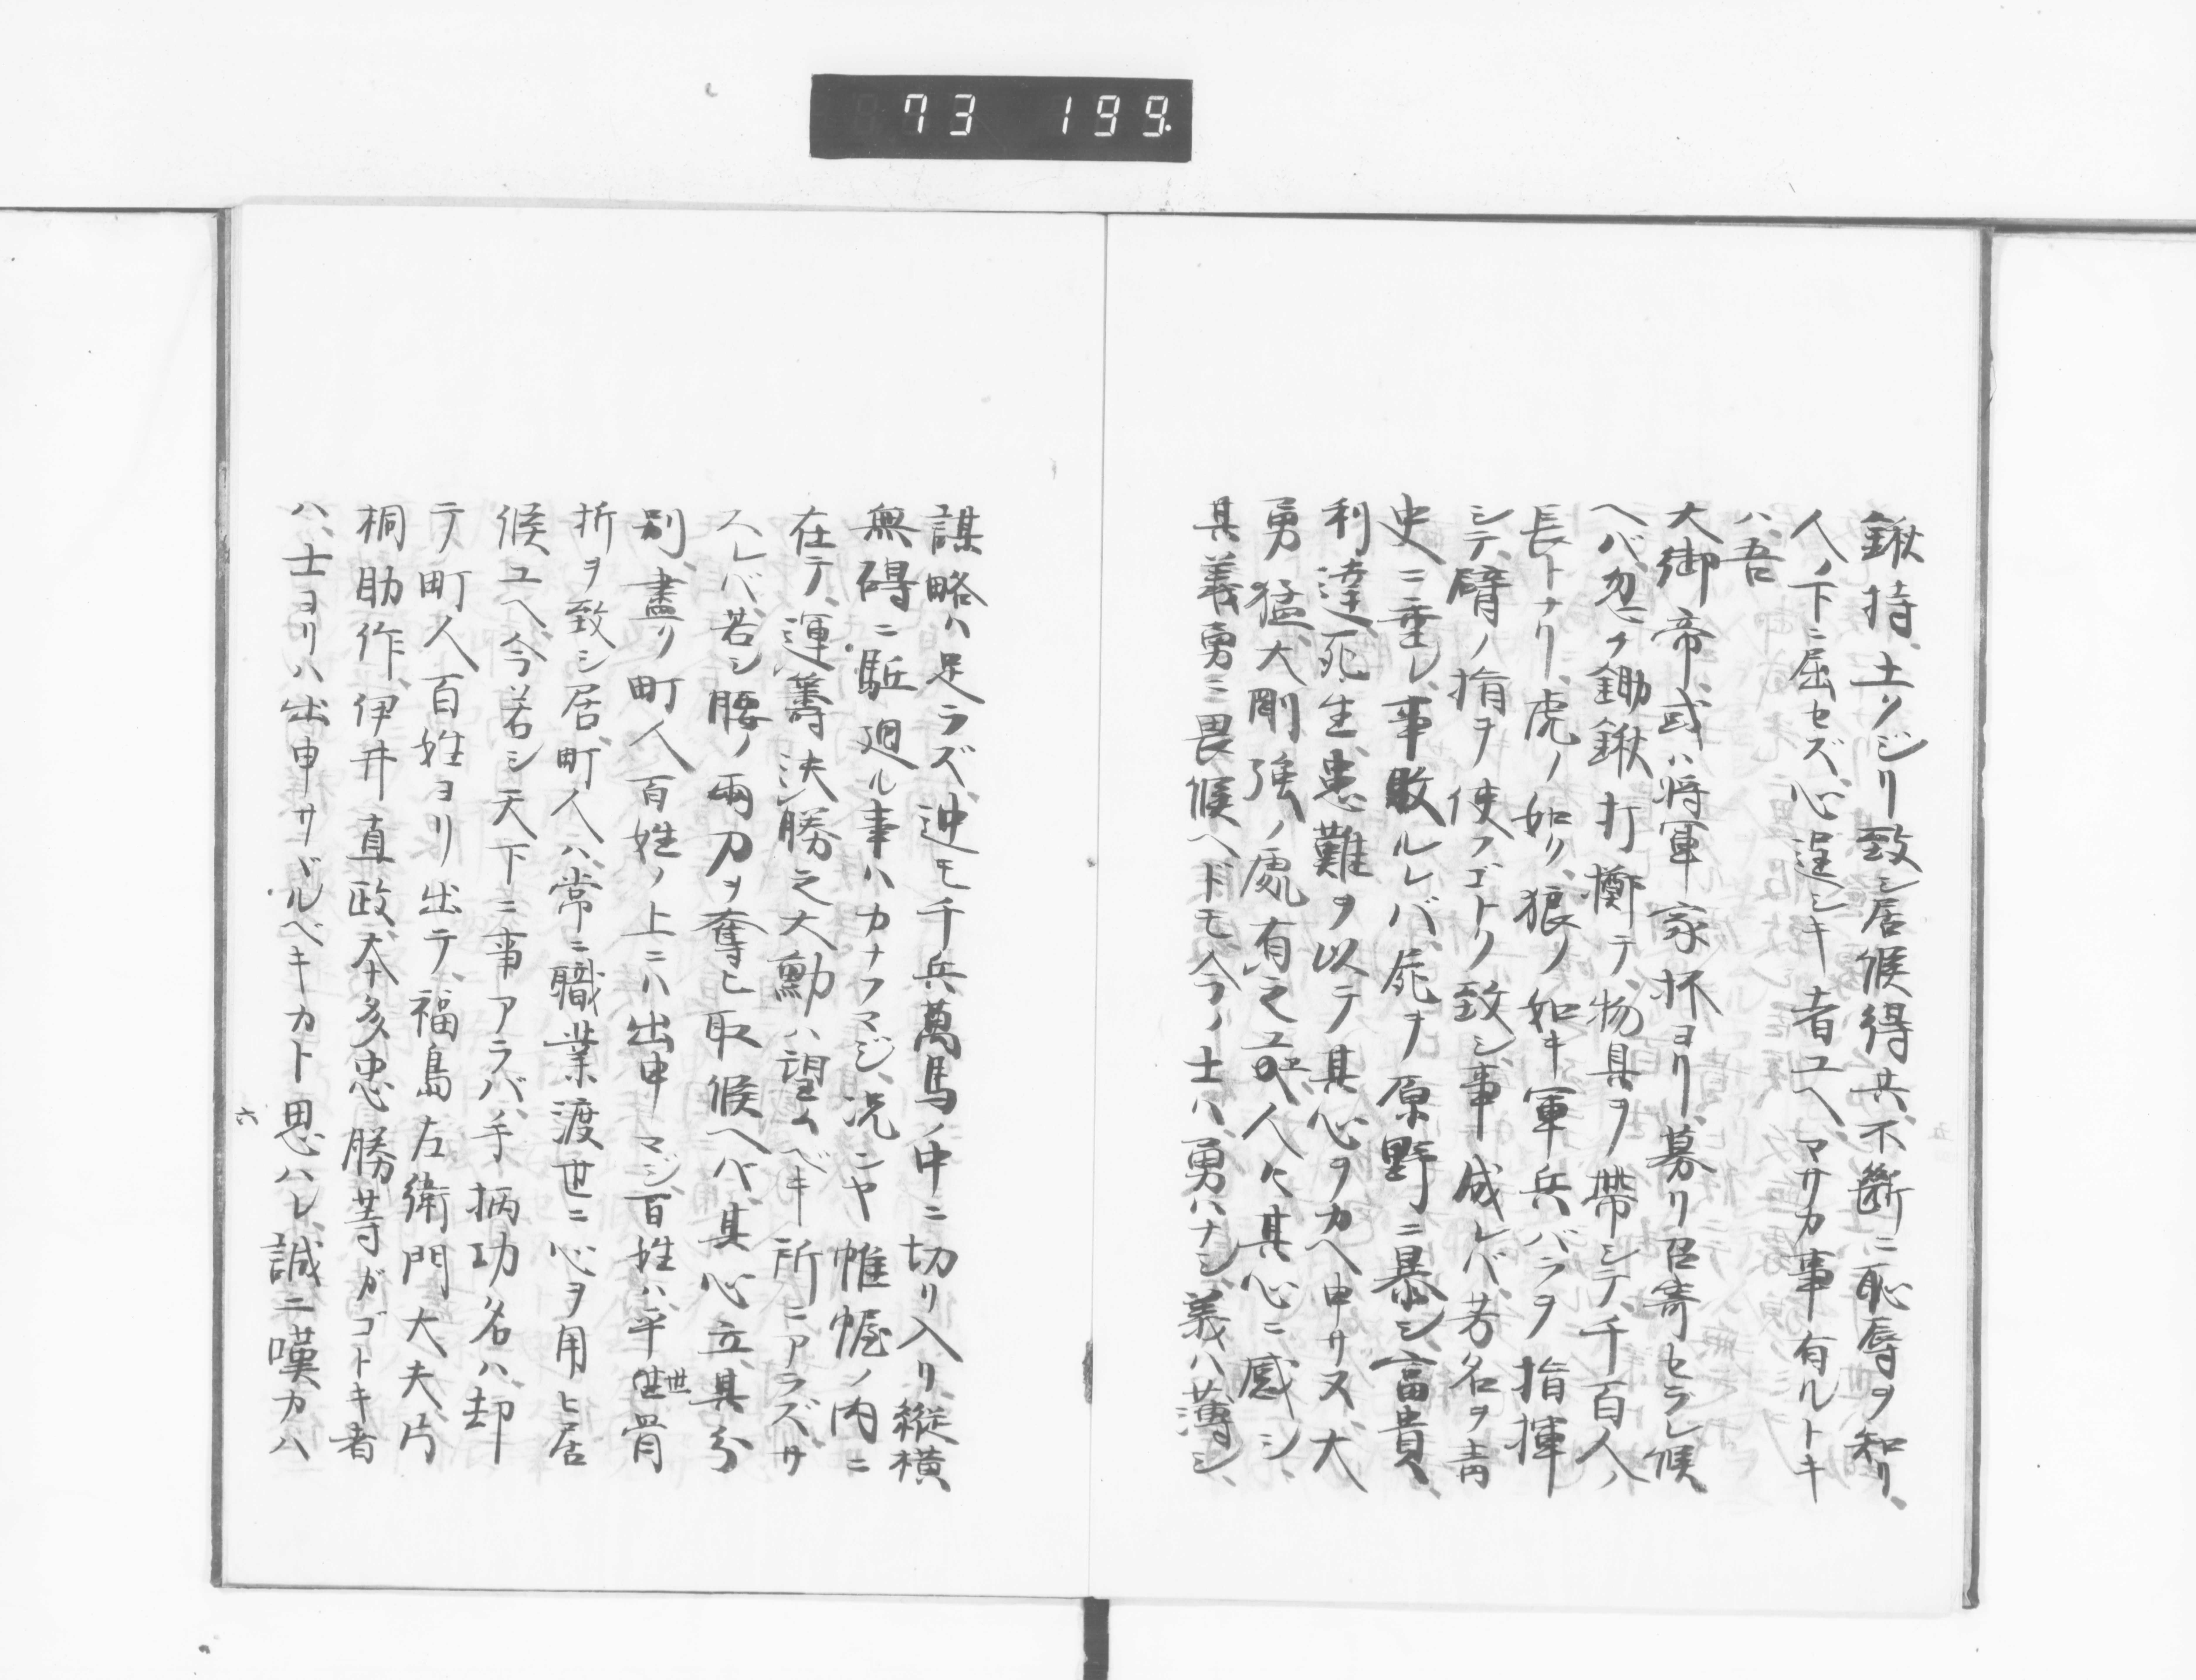 73 199.
鍬持、土ノジリ致シ居候得共、不斷ニ恥辱ヲ知リ、
人ノ下ニ屈セズ、心逞シキ者ユヘ、マサカ事有ルトキ
ハ、吾
大御帝、或ハ将軍家抔ヨリ、募リ召寄セラレ候
ヘバ、忽チ鋤鍬打擲テ、物具ヲ帶シテ、千百人ノ
長トナリ、虎ノ如ク、狼ノ如キ軍兵バラヲ指揮
シテ、臂ノ指ヲ使フゴトク致シ、事成レバ、芳名ヲ青
史ニ垂レ、事敗ルレバ、屍ヲ原野ニ暴シ、富貴、
利達、死生、患難ヲ以テ其心ヲカヘ申サヌ大
勇猛、大剛強ノ處有之ユヘ、人々其心ニ感シ、
其義勇ニ畏候ヘドモ、今ノ士ハ、勇ハナシ、義ハ薄シ、
謀略ハ足ラズ、迚モ千兵萬馬ノ中ニ切リ入リ、縦横
無碍ニ駈廻ル事ハカナフマジ、况ンヤ帷幄ノ内ニ
在テ、運籌決勝之大勳ハ望ムベキ所ニアラズ、サ
スレバ、若シ腰ノ兩刀ヲ奪ヒ取候ヘバ、其心立、其分
別、盡ク町人百姓ノ上ニハ出申マジ、百姓ハ平世骨
折ヲ致シ居、町人ハ常ニ職業渡世ニ心ヲ用ヒ居
候ユヘ、今若シ天下ニ事アラバ、手柄功名ハ、却
テ町人百姓ヨリ出テ、福島左衛門大夫、片
桐助作、伊井直政、本多忠勝等ガゴトキ者
ハ、士ヨリハ出申サヾルベキカト思ハレ、誠ニ嘆カハ
六